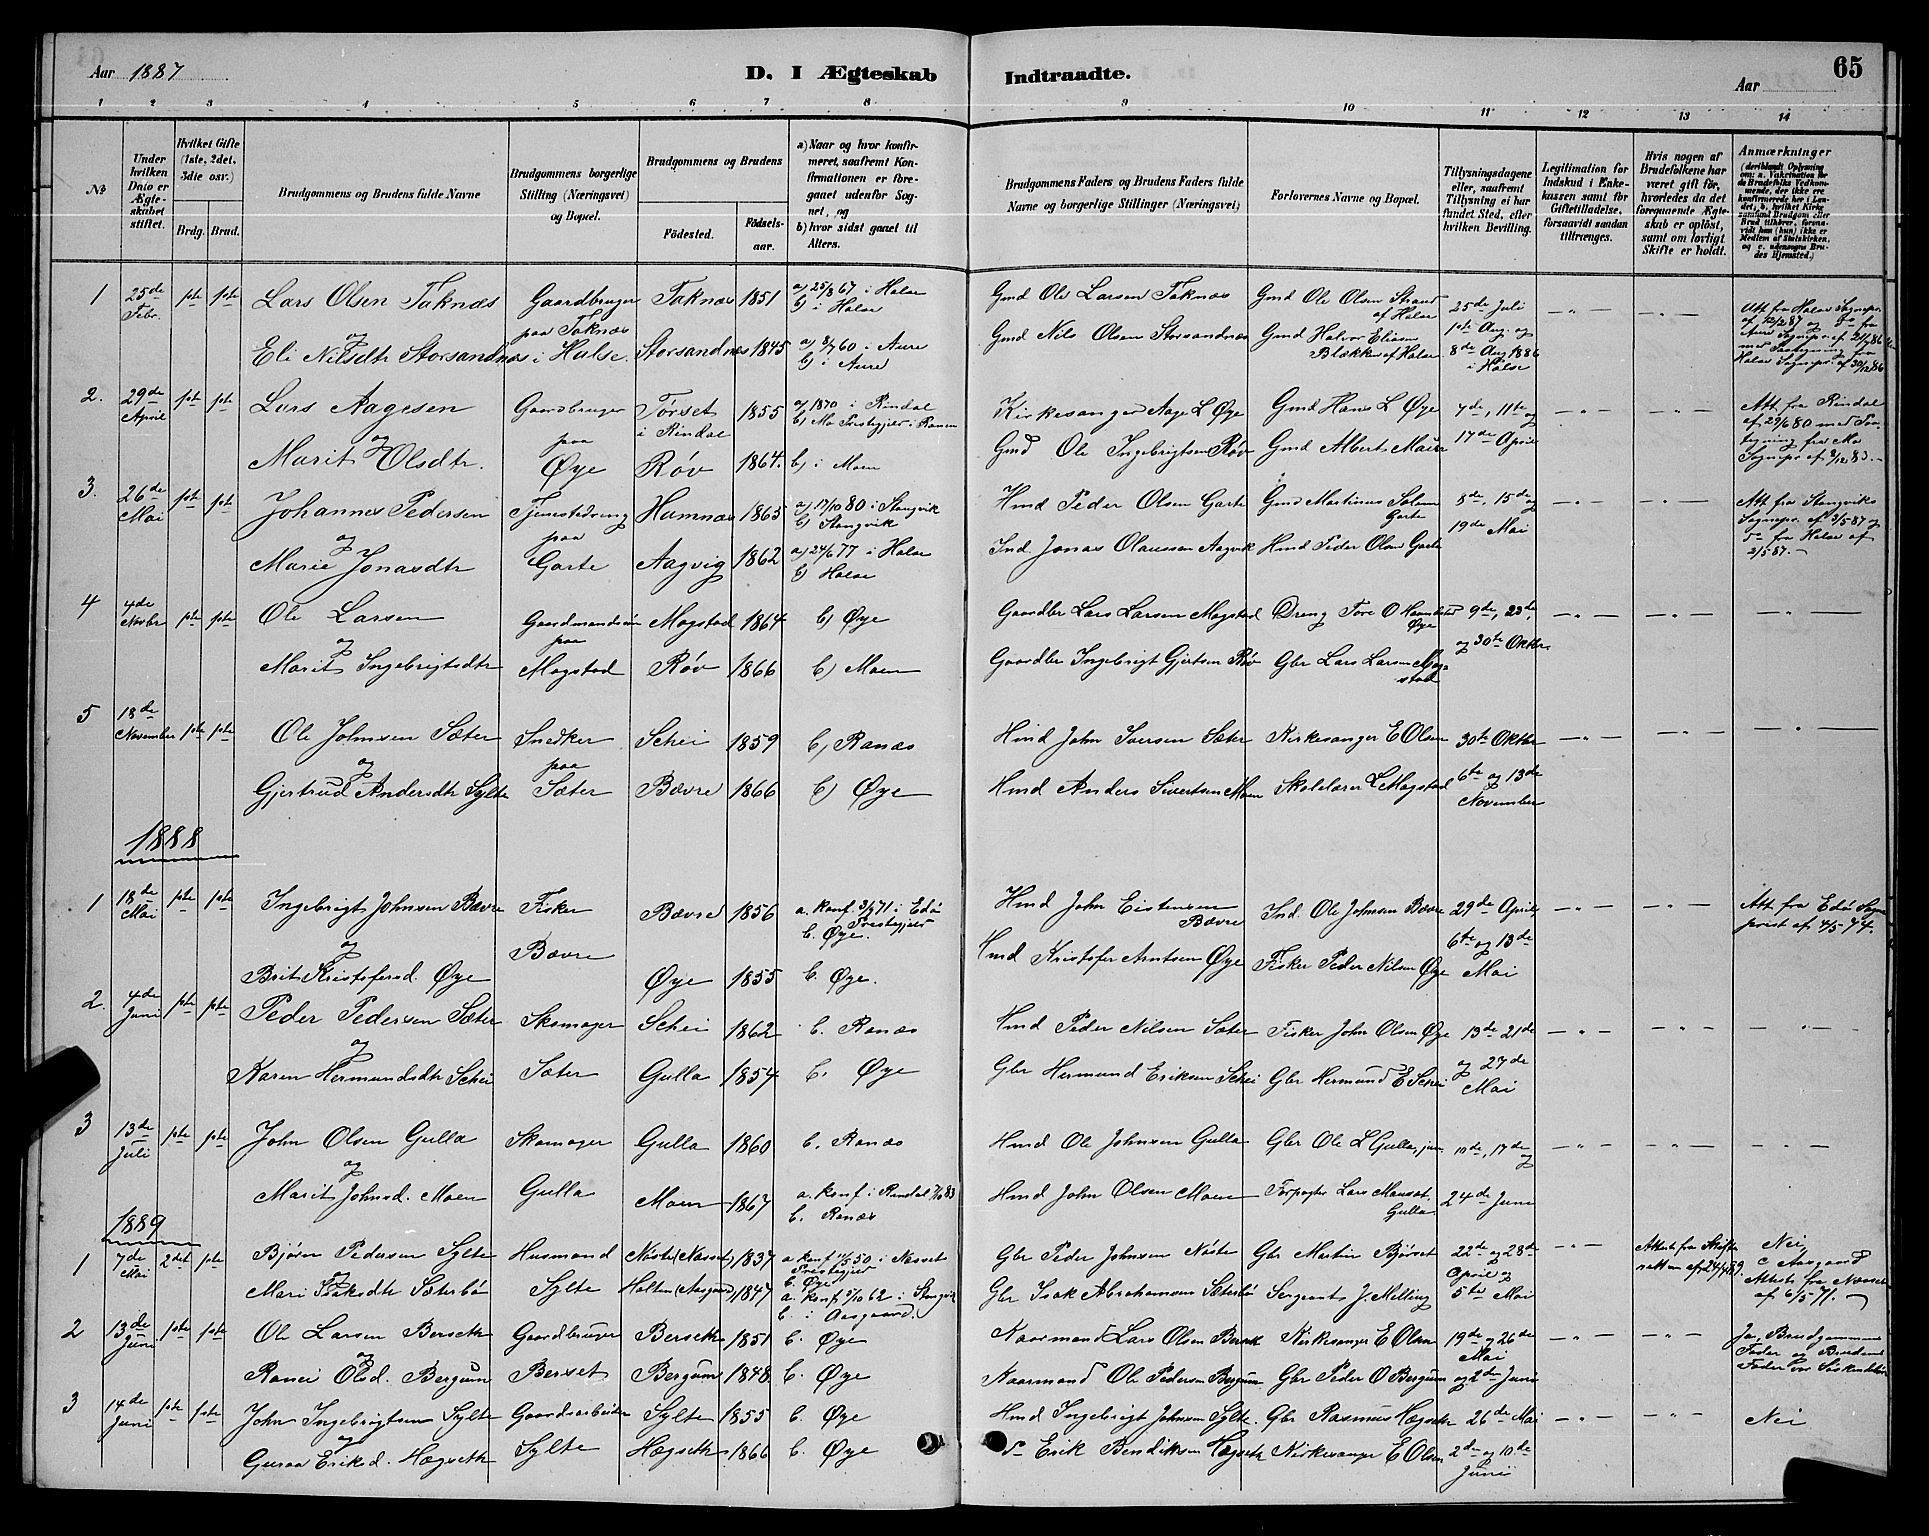 Aar 1887
D. I Ægteskab
Indtraadte.
Aar
65
1 2 3 4 5 6 7 8 9 10 11 12 13 14
No
Under hvilken Dato er Ægteskabet stiftet.
Hvilket Gifte (1ste, 2det, 3die osv.)
Brdg. Brud.
Brudgommens og Brudens fulde Navne
Brudgommens borgerlige Stilling (Næringsvei) og Bopæl.
Brudgommens og Brudens
Fødested.
Fødselsaar.
a) Naar og hvor konfirmeret, saafremt Konfirmationen er foregaaet udenfor Sognet, og
b) hvor sidst gaaet til Alters.
Brudgommens Faders og Brudens Faders fulde Navne og borgerlige Stillinger (Næringsvei)
Forlovernes Navne og Bopæl.
Tillysningsdagene eller, saafremt Tillysning ei har fundet Sted, efter hvilken Bevilling.
Legitimation for Indskud i Enkekassen samt for Giftetilladelse, forsaavidt saadan tiltrænges.
Hvis nogen af Brudefolkene har været gift før, hvorledes da det foregaaende Ægteskab er opløst, samt om lovligt Skifte er holdt.
Anmærkninger (deriblandt Oplysning om: a. Vaksination for de Brudefolks Vedkommende, der ikke ere konfirmerede her i Landet, b. hvilket Kirkesamfund Brudgom eller Brud tilhører, forsaavidt han (hun) ikke er Medlem af Statskirken, og c. udensogns Brudes Hjemsted.)
1 25de Febr. 1ste 1ste Lars Olsen Taknæs Gaardbruger Taknæs 1851 a) 25/8 67 i Halse Gmd Ole Larsen Taknæs Gmd Ole Olsen Strand af Halse 25de Juli
og paa Taknæs b) i Halse 1ste Aug. og
Eli Nilsdtr Storsandnæs i Halse. Storsandnæs 1845 a) 8/7 60 i Aure Gmd Nils Olsen Storsandnæs Gmd Halvor Eliasen Blekken af Halse 8de Aug 1886 i Halse
b) i Aure
Att fra Halse Sognepr. af 12/2 87 og do fra Aure Sognepr. af 21/7 86 med Paategning fra Halse Sognepr. af 30/12 86
2. 29de April 1ste 1ste Lars Aagesen Gaardbruger Tørset i Rindal 1855 a) 1870 i Rindal Kirkesanger Aage L Øye Gmd Hans L Øye 7de, 11te og
og paa b) Mo Prestegjeld i Ranen
Marit Olsdtr. Øye Røv 1864. b) i Moen Gmd Ole Ingebrigtsen Røv Gmd Albert Moen 17de April
Att fra Rindal af 27/6 80 med Paategning fra Mo Sognepr af 3/12 83.
3. 26de Mai 1ste 1ste Johannes Pedersen Tjenestedreng Hamnæs 1863 a) 17/10 80 i Stangvik Hmd Peder Olsen Garte Gmd Martinus Garte 8de, 15de og
og paa b) Stangvik
Marie Jonasdtr Garte Aagvig 1862 a) 24/6 77 i Halse Ind. Jonas Olaussen Aagvik Hmd Peder Olsen Garte 19de Mai
b) Halse
Att fra Stangviks Sognepr. af 3/5 87 og do fra Halse af 2/5 87.
4 4de Novbr 1ste 1ste Ole Larsen Gaardmandssøn Magstad 1864 b) Øye Gaardbr Lars Larsen Magstad Dreng Tore O Øye 9de, 23de,
og paa
Marit Ingebrigtsdtr Magstad Røv 1866 b) Moen Gaardbr Ingebrigt Gjertsen Røv Gbr Lars Larsen Magstad og 30te Oktbr.
5 18de November 1ste 1ste Ole Johnsen Sæter Snedker Schei 1859 b) Ranæs Hmd John Iversen Sæter Kirkesanger E Olsen 30te Oktbr
og paa
Gjertrud Andersdtr Sylte Sæter Bævre 1866 b) Øye Hmd Anders Sivertsen Moen Skolelærer L Magstad 6te og 13de November
1888
1 18de Mai 1ste 1ste Ingebrigt Johnsen Bævre Fisker Bævre 1856 a. konf. 3/9 71 i Edø Prestegjeld Hmd John Eistensen Bævre Ind. Ole Johnsen Bævre 29de April
og Bævre b. Øye.
Brit Kristofersd. Øye Øye 1855 b. Øye. Hmd Kristofer Arntsen Øye Fisker Peder Nilsen Øye 6te og 13de Mai
Att fra Edø Sogneprest af 4/5 74.
2. 4de Juni 1ste 1ste Peder Pedersen Sæter Skomager Schei 1862 b. Ranæs Hmd Peder Nilsen Sæter Fisker John Olsen Øye 13de 21de
og
Karen Hermundsdtr Schei Sæter Gulla 1854 b. Øye Gbr Hermund Eriksen Schei Gbr Hermund E Schei og 27de Mai
3 13de Juli 1ste 1ste John Olsen Gulla Skomager Gulla 1860 b. Ranæs Hmd Ole Johnsen Gulla Gbr Ole L Gulla, jun 10de, 17de og
og
Marit Johnsd. Moen Gulla Moen 1867 a. konf i Rindal 83 Hmd John Olsen Moen Forpagter Lars Gulla 24de Juni
b. Ranæs
1889
1 7de Mai 2det 1ste Bjørn Pedersen Sylte Husmand Nøste (Nesset) 1837 a. konf 50 i Nesset Prestegjeld Gbr Peder Johnsen Nøste Gbr Martin Bjørset 22de og 28de April og
og b. Øye
Mari Isaksdtr Sæterbø Sylte Holten (Aasgaard) 1847 a. konf 5/10 62 i Stangvik Gbr Isak Abrahamsen Sæterbø Sergeant J. Melling 5te Mai
b. i Aasgaard.
Attest fra Skifteretten af 24/4 89.
Nei, c Aasgaard Attest fra Nesset af 6/5 71.
2 13de Juni 1ste 1ste Ole Larsen Berseth Gaardbruger Berseth 1851 b. Øye Kaarmand Lars Olsen Berseth Kirkesanger E Olsen 19de og 26de Mai
og
Ranei Olsd. Bergum Berset Bergum 1848 b. Øye Kaarmand Ole Pedersen Bergum Gbr Peder O Bergum og 2de Juni
Ja, Brudgommens Fader og Brudens Fader var Søskendebørn
3 14de Juni 1ste 1ste John Ingebrigtsen Sylte Gaardsarbeider Sylte 1855 b. Øye Hmd Ingebrigt Johnsen Sylte. Gbr Rasmus Hægseth 26de Mai Nei
og
Guraa Eriksd. Hægseth Sylte Hægseth 1866 b. Øye do Erik Bendiksen Hægseth Kirkesanger E Olsen 2de og 10de Juni